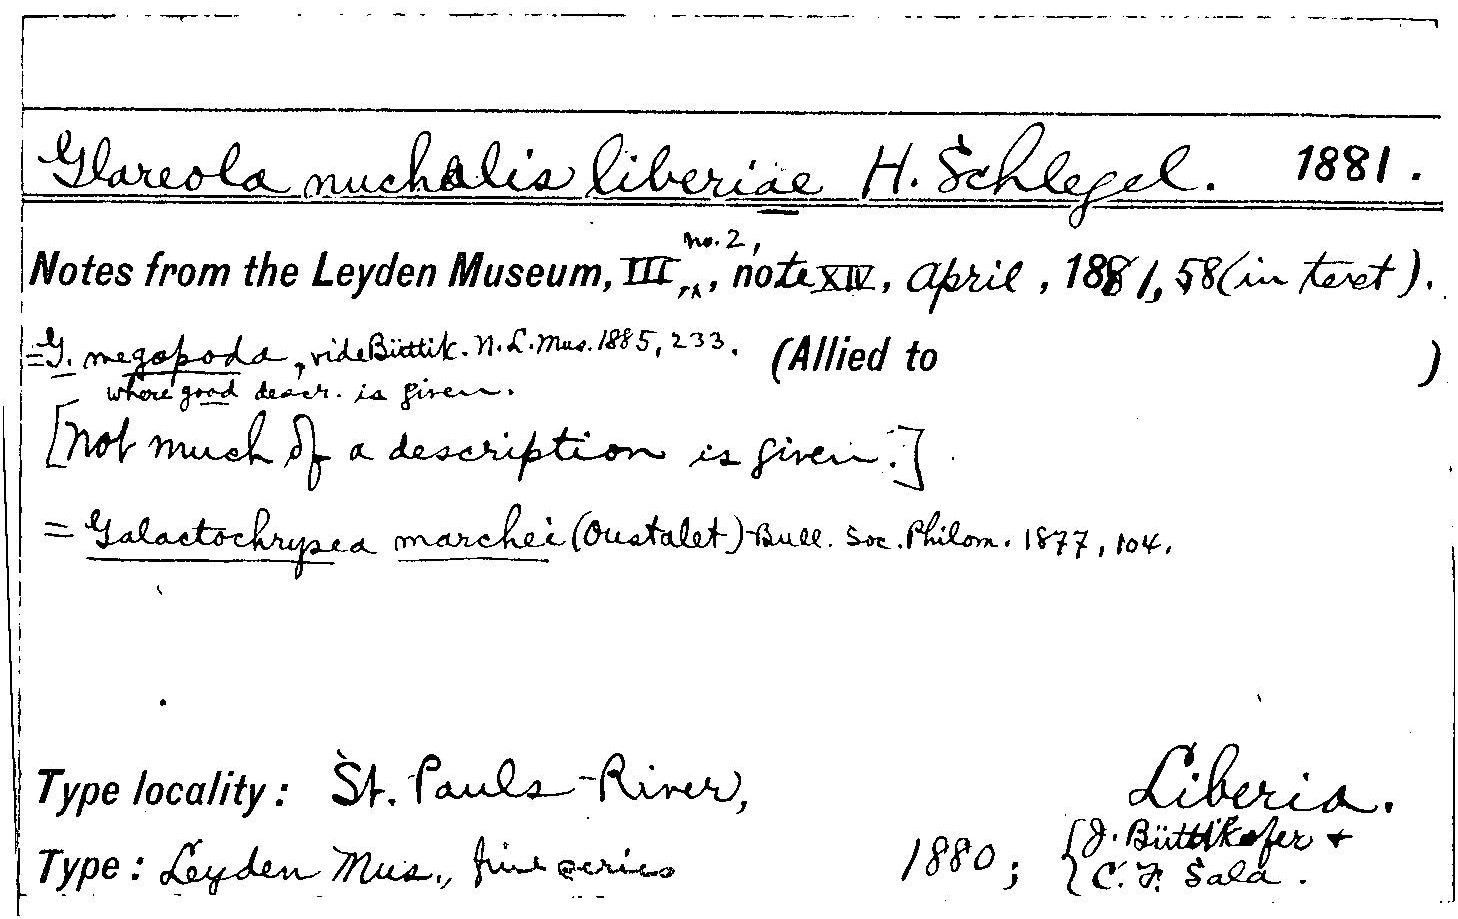 Glareola nuchalis liberiae H. Schlegel. 1881.
Notes from the Leyden Museum, III, no. 2, note XIV, April, 1881, 58 (in text).
=G. megapoda, vide Büttik. N. L. Mus. 1885, 233. (Allied to )
where good descr. is given.
[Not much of a description is given.]
= Galactochrysea marchei (Oustalet) Bull. Soc. Philom. 1877, 104.
Type locality: St. Pauls-River, Liberia.
Type: Leyden Mus., fine series 1880; {J. Büttikofer +
C. F. Sala.